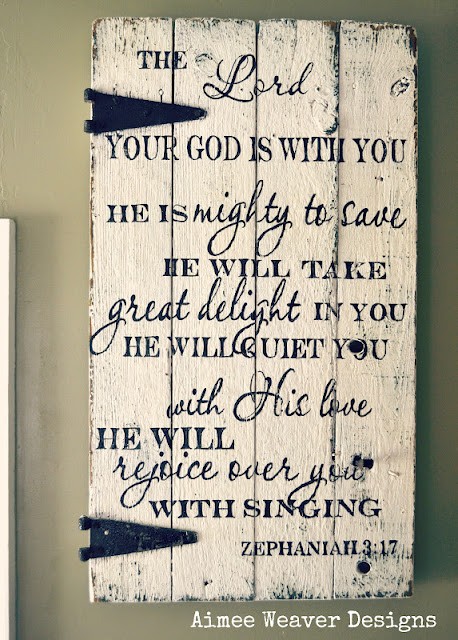 THE Lord
YOUR GOD IS WITH YOU
HE IS mighty to save
HE WILL TAKE
great delight IN YOU
HE WILL QUIET YOU
with His love
HE WILL
rejoice over you
WITH SINGING
ZEPHANIAH 3:17
Aimee Weaver Designs